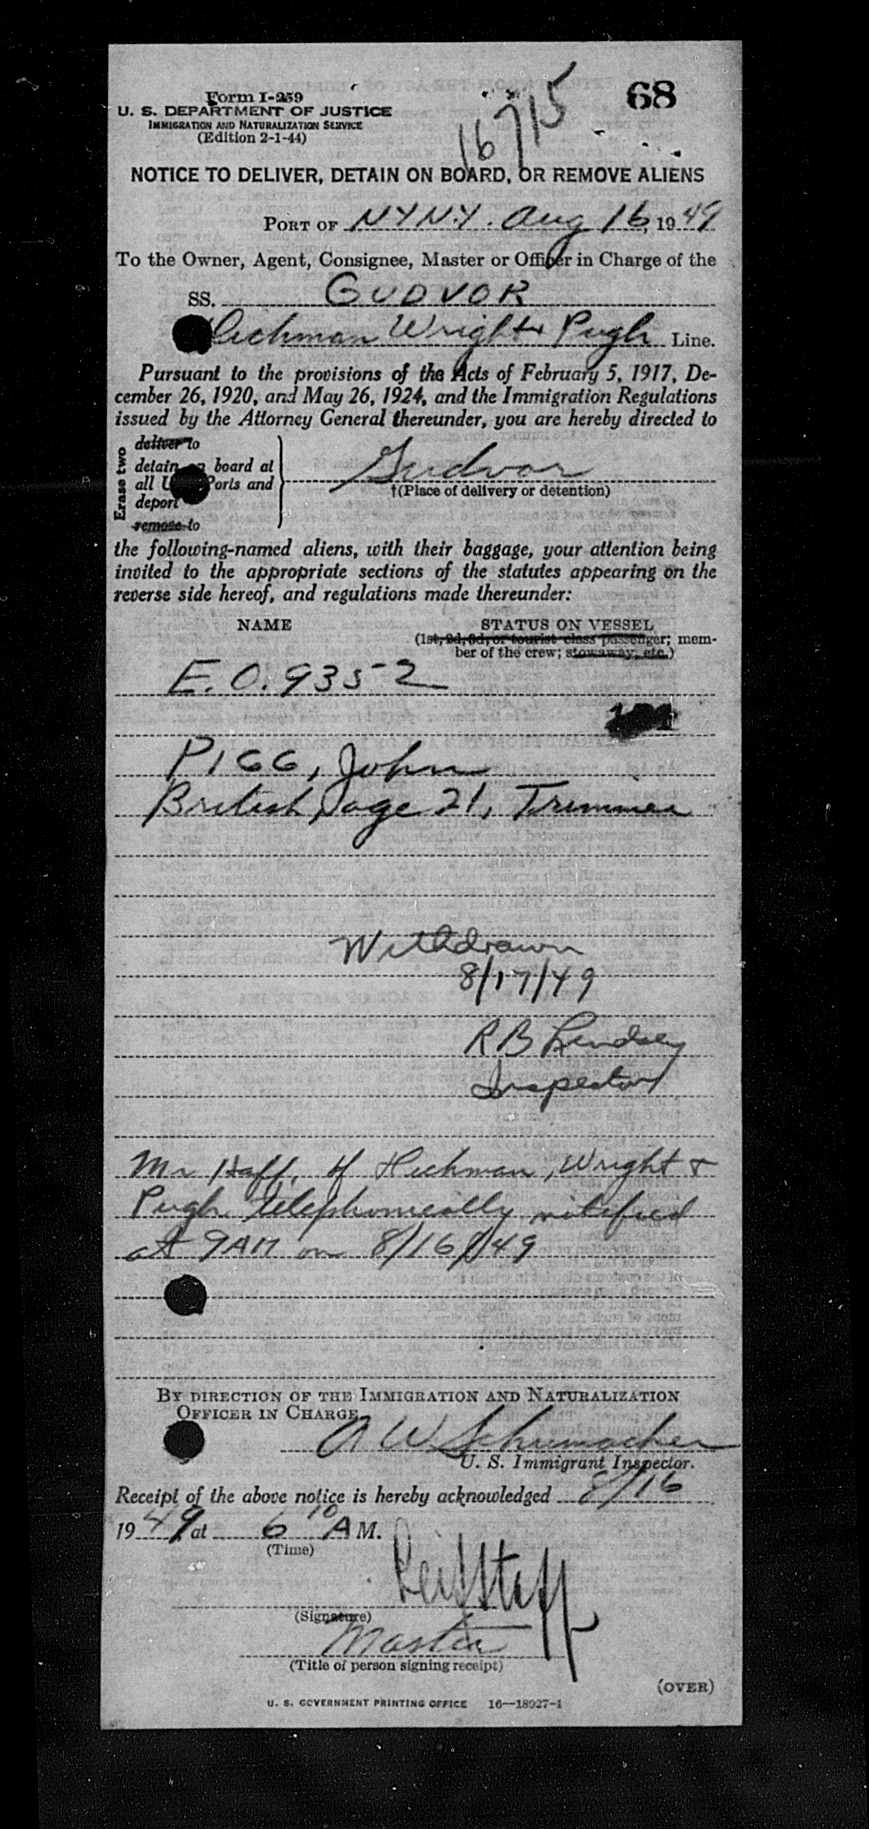 68
16715
Form I-259
U. S. DEPARTMENT OF JUSTICE
IMMIGRATION AND NATURALIZATION SERVICE
(Edition 2-1-44)
NOTICE TO DELIVER, DETAIN ON BOARD, OR REMOVE ALIENS
PORT OF NYNY. Aug 16, 1949
To the Owner, Agent, Consignee, Master or Officer in Charge of the
SS. GUDVOR
Hickman Wright & Pugh Line.
Pursuant to the provisions of the Acts of February 5, 1917, De-
cember 26, 1920, and May 26, 1924, and the Immigration Regulations
issued by the Attorney General thereunder, you are hereby directed to
Erase two
deliver to
detain on board at
all U Ports and
deport
remove to
Gudvor
†(Place of delivery or detention)
the following-named aliens, with their baggage, your attention being
invited to the appropriate sections of the statutes appearing on the
reverse side hereof, and regulations made thereunder:
NAME STATUS ON VESSEL
(1st, 2d, 3d, or tourist class passenger; mem-
ber of the crew; stowaway, etc.)
E.O. 9352
PIGG, John
British, age 21, Trimmer
Withdrawn
8/17/49
RB Lindsey
Inspector
Mr Haff, of Hickman, Wright &
Pugh telephonically notified
at 9AM on 8/16/49
BY DIRECTION OF THE IMMIGRATION AND NATURALIZATION
OFFICER IN CHARGE
A W Schumacher
U. S. Immigrant Inspector.
Receipt of the above notice is hereby acknowledged 8/16
1949 at 6 10 A M.
(Time)
(Signature)
Master
(Title of person signing receipt)
(OVER)
U. S. GOVERNMENT PRINTING OFFICE 16—18927-1